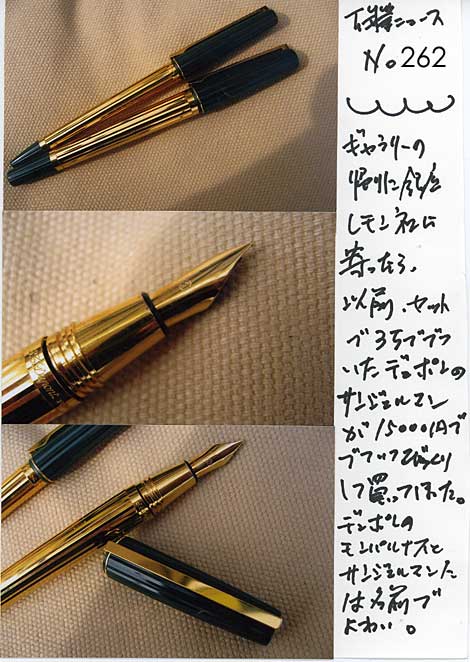 No.262
ギャラリーの
帰りに銀座
レモン社に
寄ったら、
以前、セット
で3万でプラ
いたデュポンの
サンジェルマン
が15000円で
びっくり
して買って来た。
デュポンの
モンパルナスと
サンジェルマンに
は名前で
よわい。